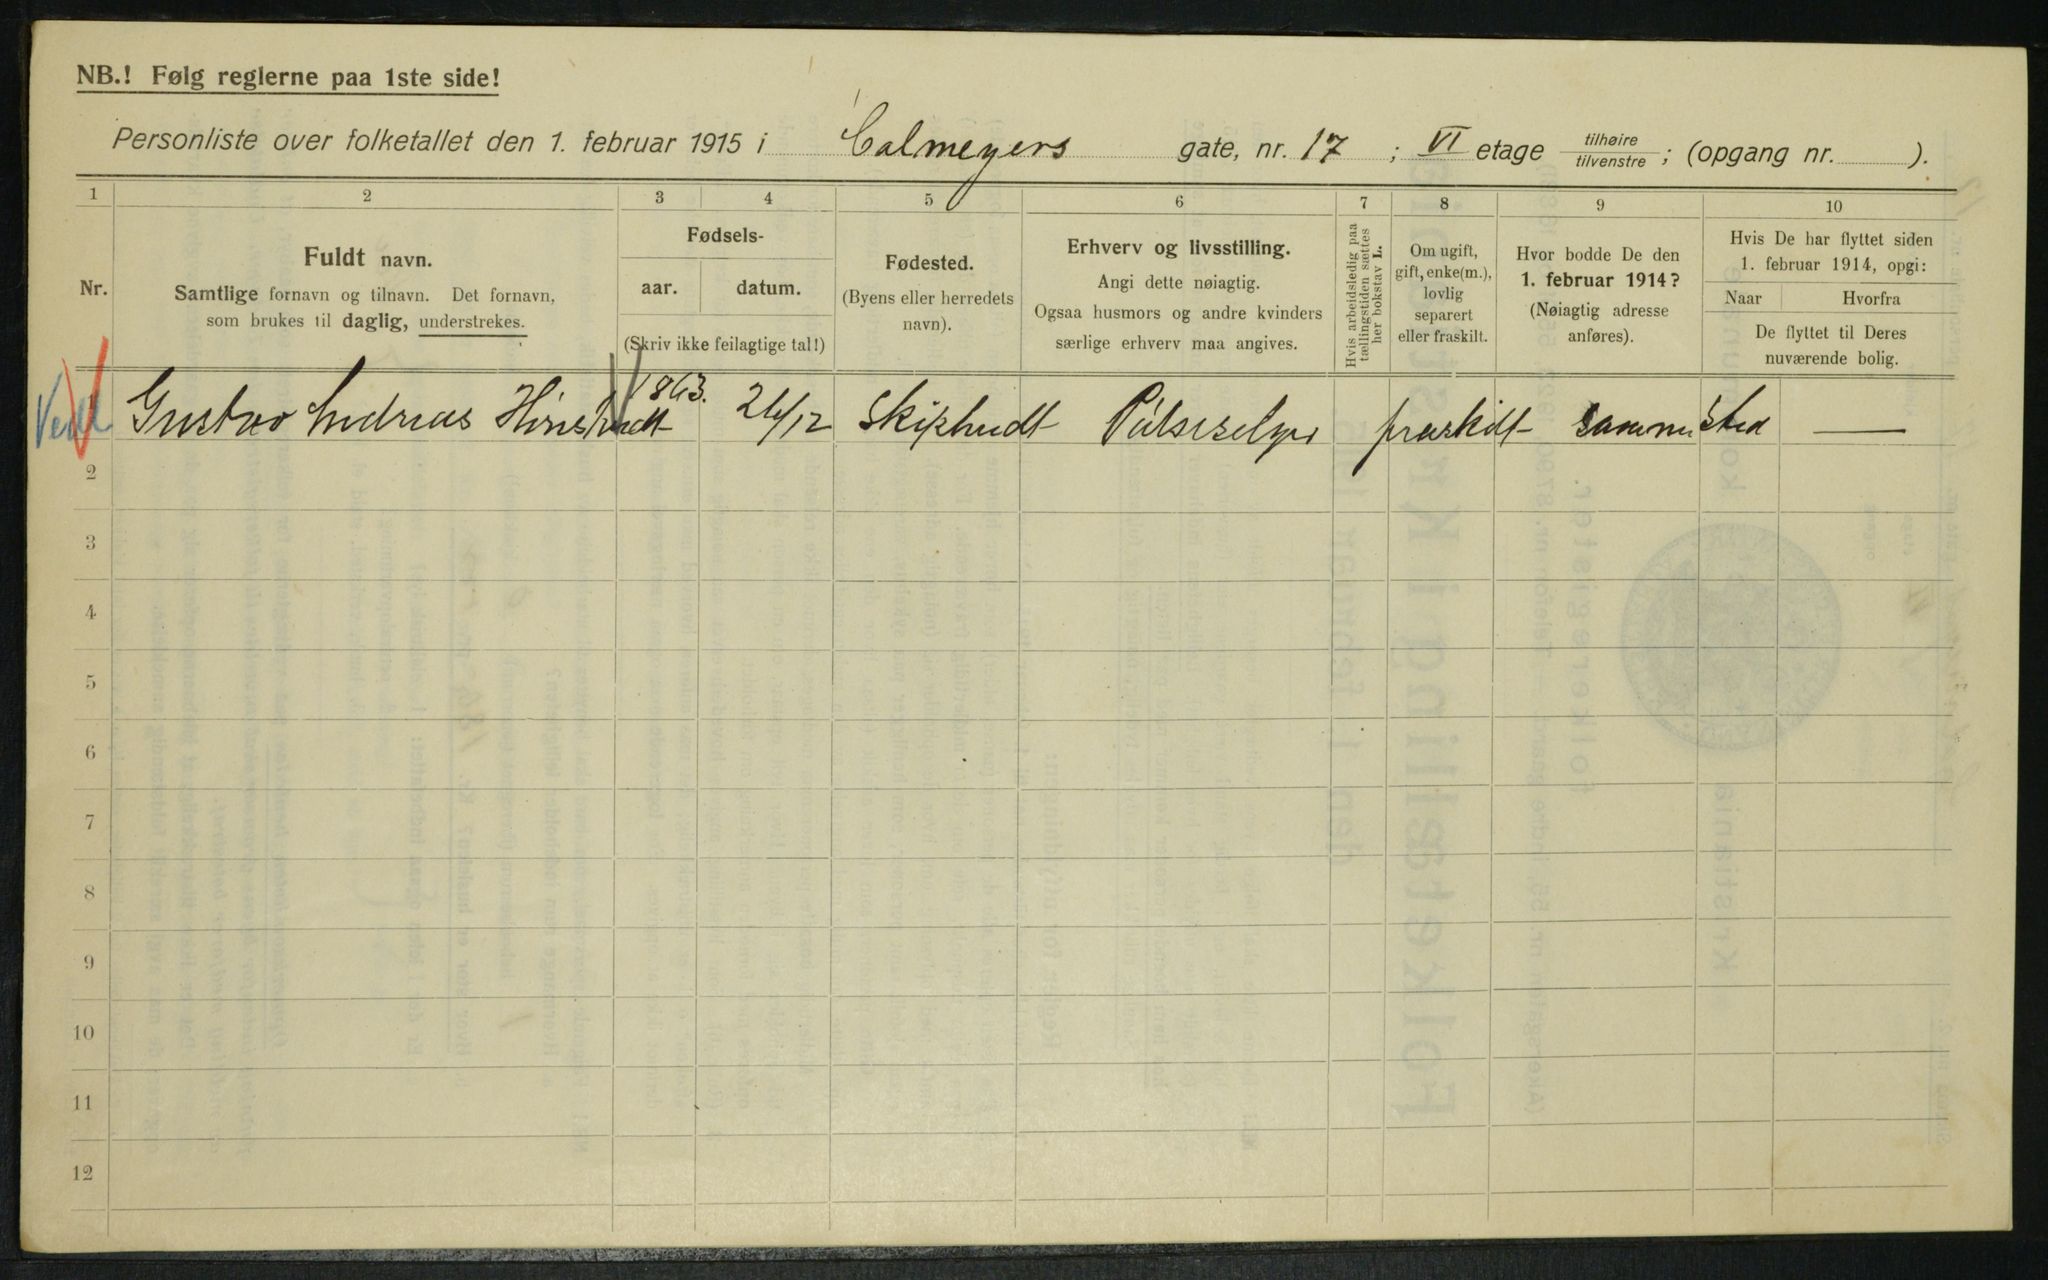 NB.! Følg reglerne paa 1ste side!
Personliste over folketallet den 1. februar 1915 i Calmeyers gate, nr. 17 ; VI etage tilhøire / tilvenstre ; (opgang nr. ).
1 2 3 4 5 6 7 8 9 10
Nr.
Fuldt navn.
Samtlige fornavn og tilnavn. Det fornavn,
som brukes til daglig, understrekes.
Fødsels-
aar. datum.
(Skriv ikke feilagtige tal!)
Fødested.
(Byens eller herredets
navn).
Erhverv og livsstilling.
Angi dette nøiagtig.
Ogsaa husmors og andre kvinders
særlige erhverv maa angives.
Hvis arbeidsledig paa
tællingstiden sættes
her bokstav L.
Om ugift,
gift, enke(m.),
lovlig
separert
eller fraskilt.
Hvor bodde De den
1. februar 1914?
(Nøiagtig adresse
anføres).
Hvis De har flyttet siden
1. februar 1914, opgi:
Naar Hvorfra
De flyttet til Deres
nuværende bolig.
Gustav Andreas 1863. 24/12 Skiphvedt Pølseselger fraskilt samme sted —
2
3
4
5
6
7
8
9
10
11
12